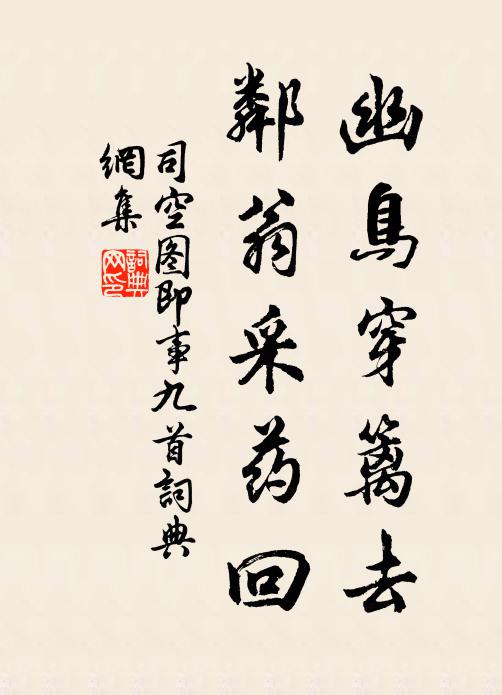 幽鳥穿篱去
鄰翁采药回
司空图即事九首詞典
網集
詞典
网印